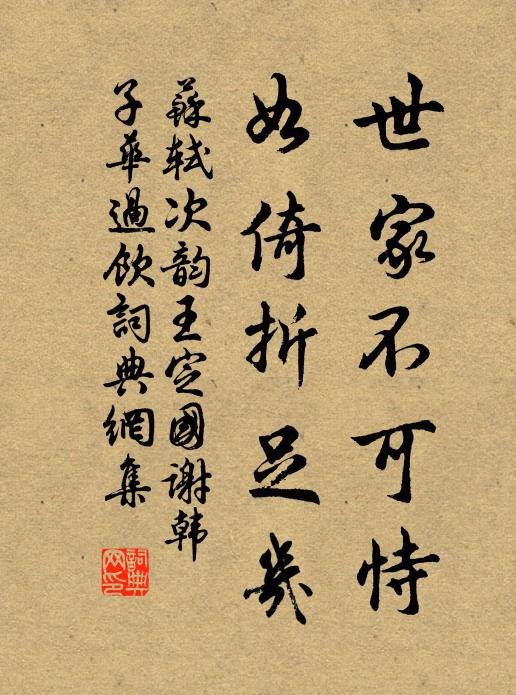 世家不可恃
如倚折足幾
蘇軾次韵王定國谢韩
子華過飲詞典網集
詞典網印